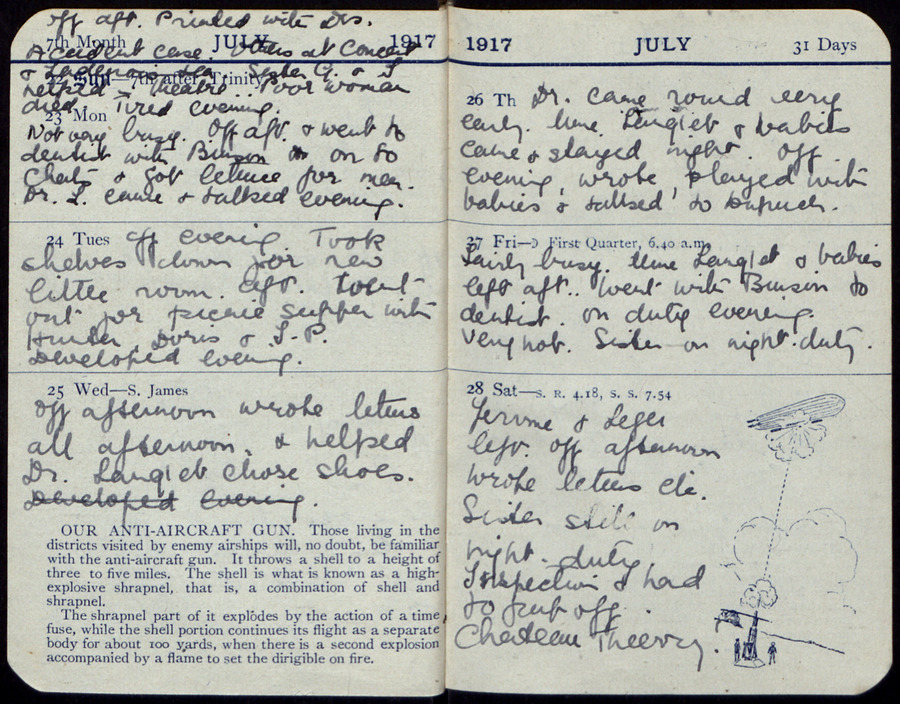 off aft. Printed with Drs.
7th Month JULY 1917
Accident case. Others at Concert
& tea. Sister G. & I
22 Sun—7th after Trinity
helped theatre. Poor woman
died. Tired evening.
23 Mon
Not very busy. Off aft. & went to
dentist with Binson on to
Chat & got lettuce for men.
Dr. L. came & talked evening.
24 Tues off evening. Took
shelves down for new
little room. aft. Went
out for picnic supper with
Hunter, Doris & J.P.
Developed evening.
25 Wed—S. James
Off afternoon wrote letters
all afternoon. & helped
Dr. Langlet chose shoes.
Developed evening.
OUR ANTI-AIRCRAFT GUN. Those living in the
districts visited by enemy airships will, no doubt, be familiar
with the anti-aircraft gun. It throws a shell to a height of
three to five miles. The shell is what is known as a high-
explosive shrapnel, that is, a combination of shell and
shrapnel.
The shrapnel part of it explodes by the action of a time
fuse, while the shell portion continues its flight as a separate
body for about 100 yards, when there is a second explosion
accompanied by a flame to set the dirigible on fire.
1917 JULY 31 Days
26 Th Dr. came round very
early. Mme. Langlet & babies
came & stayed night. Off
evening, wrote, played with
babies & talked to
27 Fri—☽ First Quarter, 6.40 a.m.
Fairly busy. Mme Langlet & babies
left aft.. Went with Binson to
dentist. on duty evening.
Very hot. Sister on night duty.
28 Sat—S. R. 4.18, S. S. 7.54
Jerome & Leger
left. Off afternoon
wrote letters etc.
Sister still on
night duty
Inspection & had
to put off
Chateau Thierry.